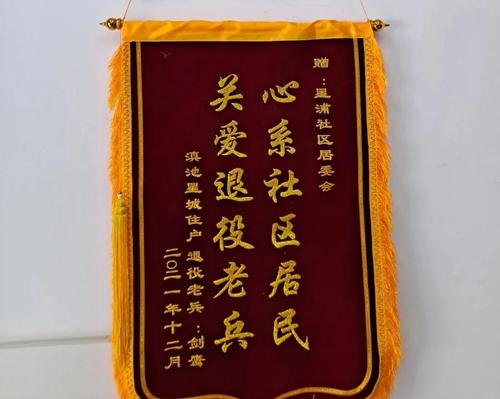 赠：星浦社区居委会
心系社区居民
关爱退役老兵
滇池星城住户 退役老兵：剑鹰
二〇二一年十二月